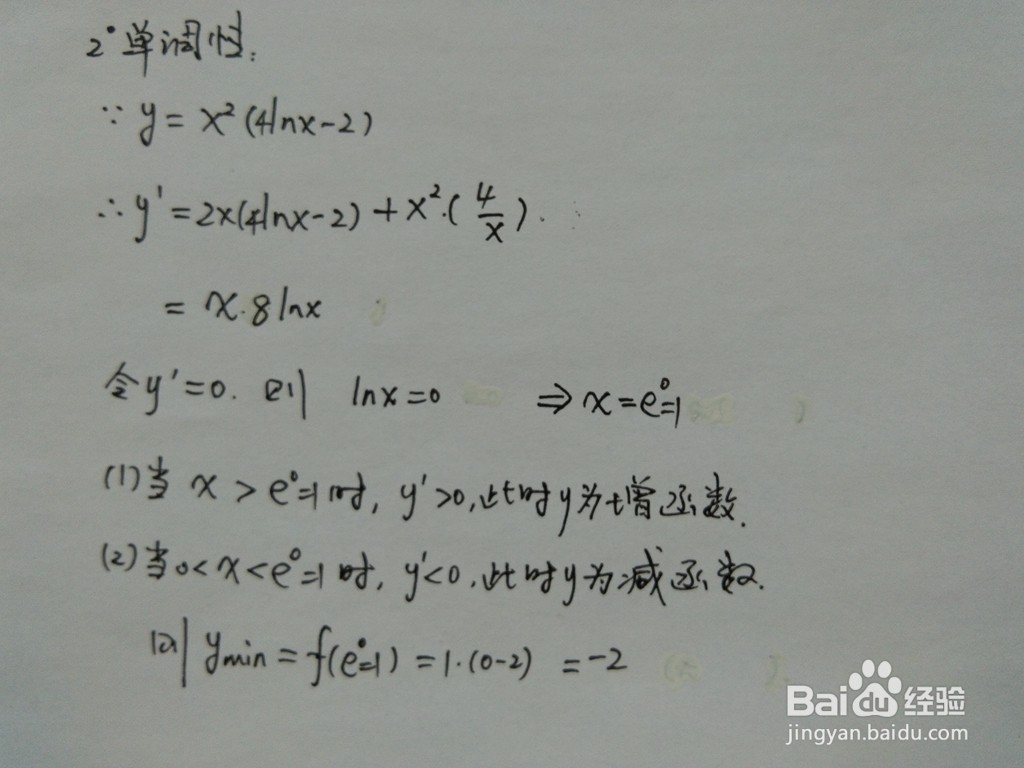 2° 单调性:
∵ y = x²(4lnx-2)
∴ y' = 2x(4lnx-2) + x²·(4/x).
= x·8lnx
令y'=0. 则 lnx=0 ⇒ x=e⁰=1
(1)当 x > e⁰=1时, y'>0,此时y为增函数.
(2)当0<x<e⁰=1时, y'<0,此时y为减函数.
则 ymin = f(e⁰=1) = 1·(0-2) = -2
Baidu经验
jingyan.baidu.com